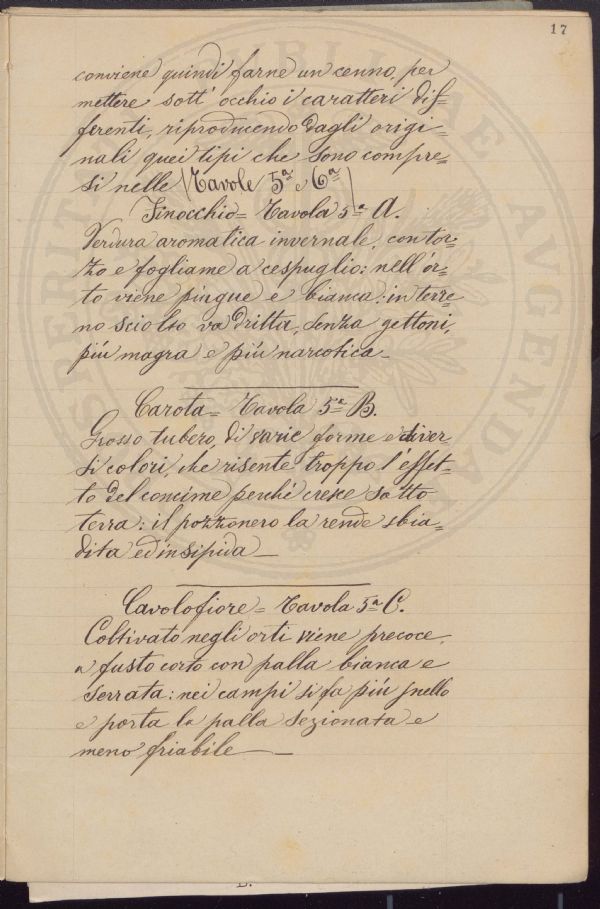 17
conviene quindi farne un cenno, per
mettere sott' occhio i caratteri dif=
ferenti, riproducendo dagli origi=
nali quei tipi che sono compre=
si nelle (Tavole 5ª e 6ª)
Finocchio = Tavola 5ª A.
Verdura aromatica invernale, con tor=
zo e fogliame a cespuglio: nell'or=
to viene pingue e bianca: in terre=
no sciolto va dritta, senza gettoni,
più magra e più narcotica _
Carota = Tavola 5ª B.
Grosso tubero, di varie forme e diver
si colori, che risente troppo l'effet=
to del concime perché cresce sotto
terra: il pozzonero la rende sbia=
dita ed insipida _
Cavolofiore = Tavola 5ª C.
Coltivato negli orti viene precoce,
a fusto corto con palla bianca e
serrata: nei campi si fa più snello
e porta la palla sezionata e
meno friabile _